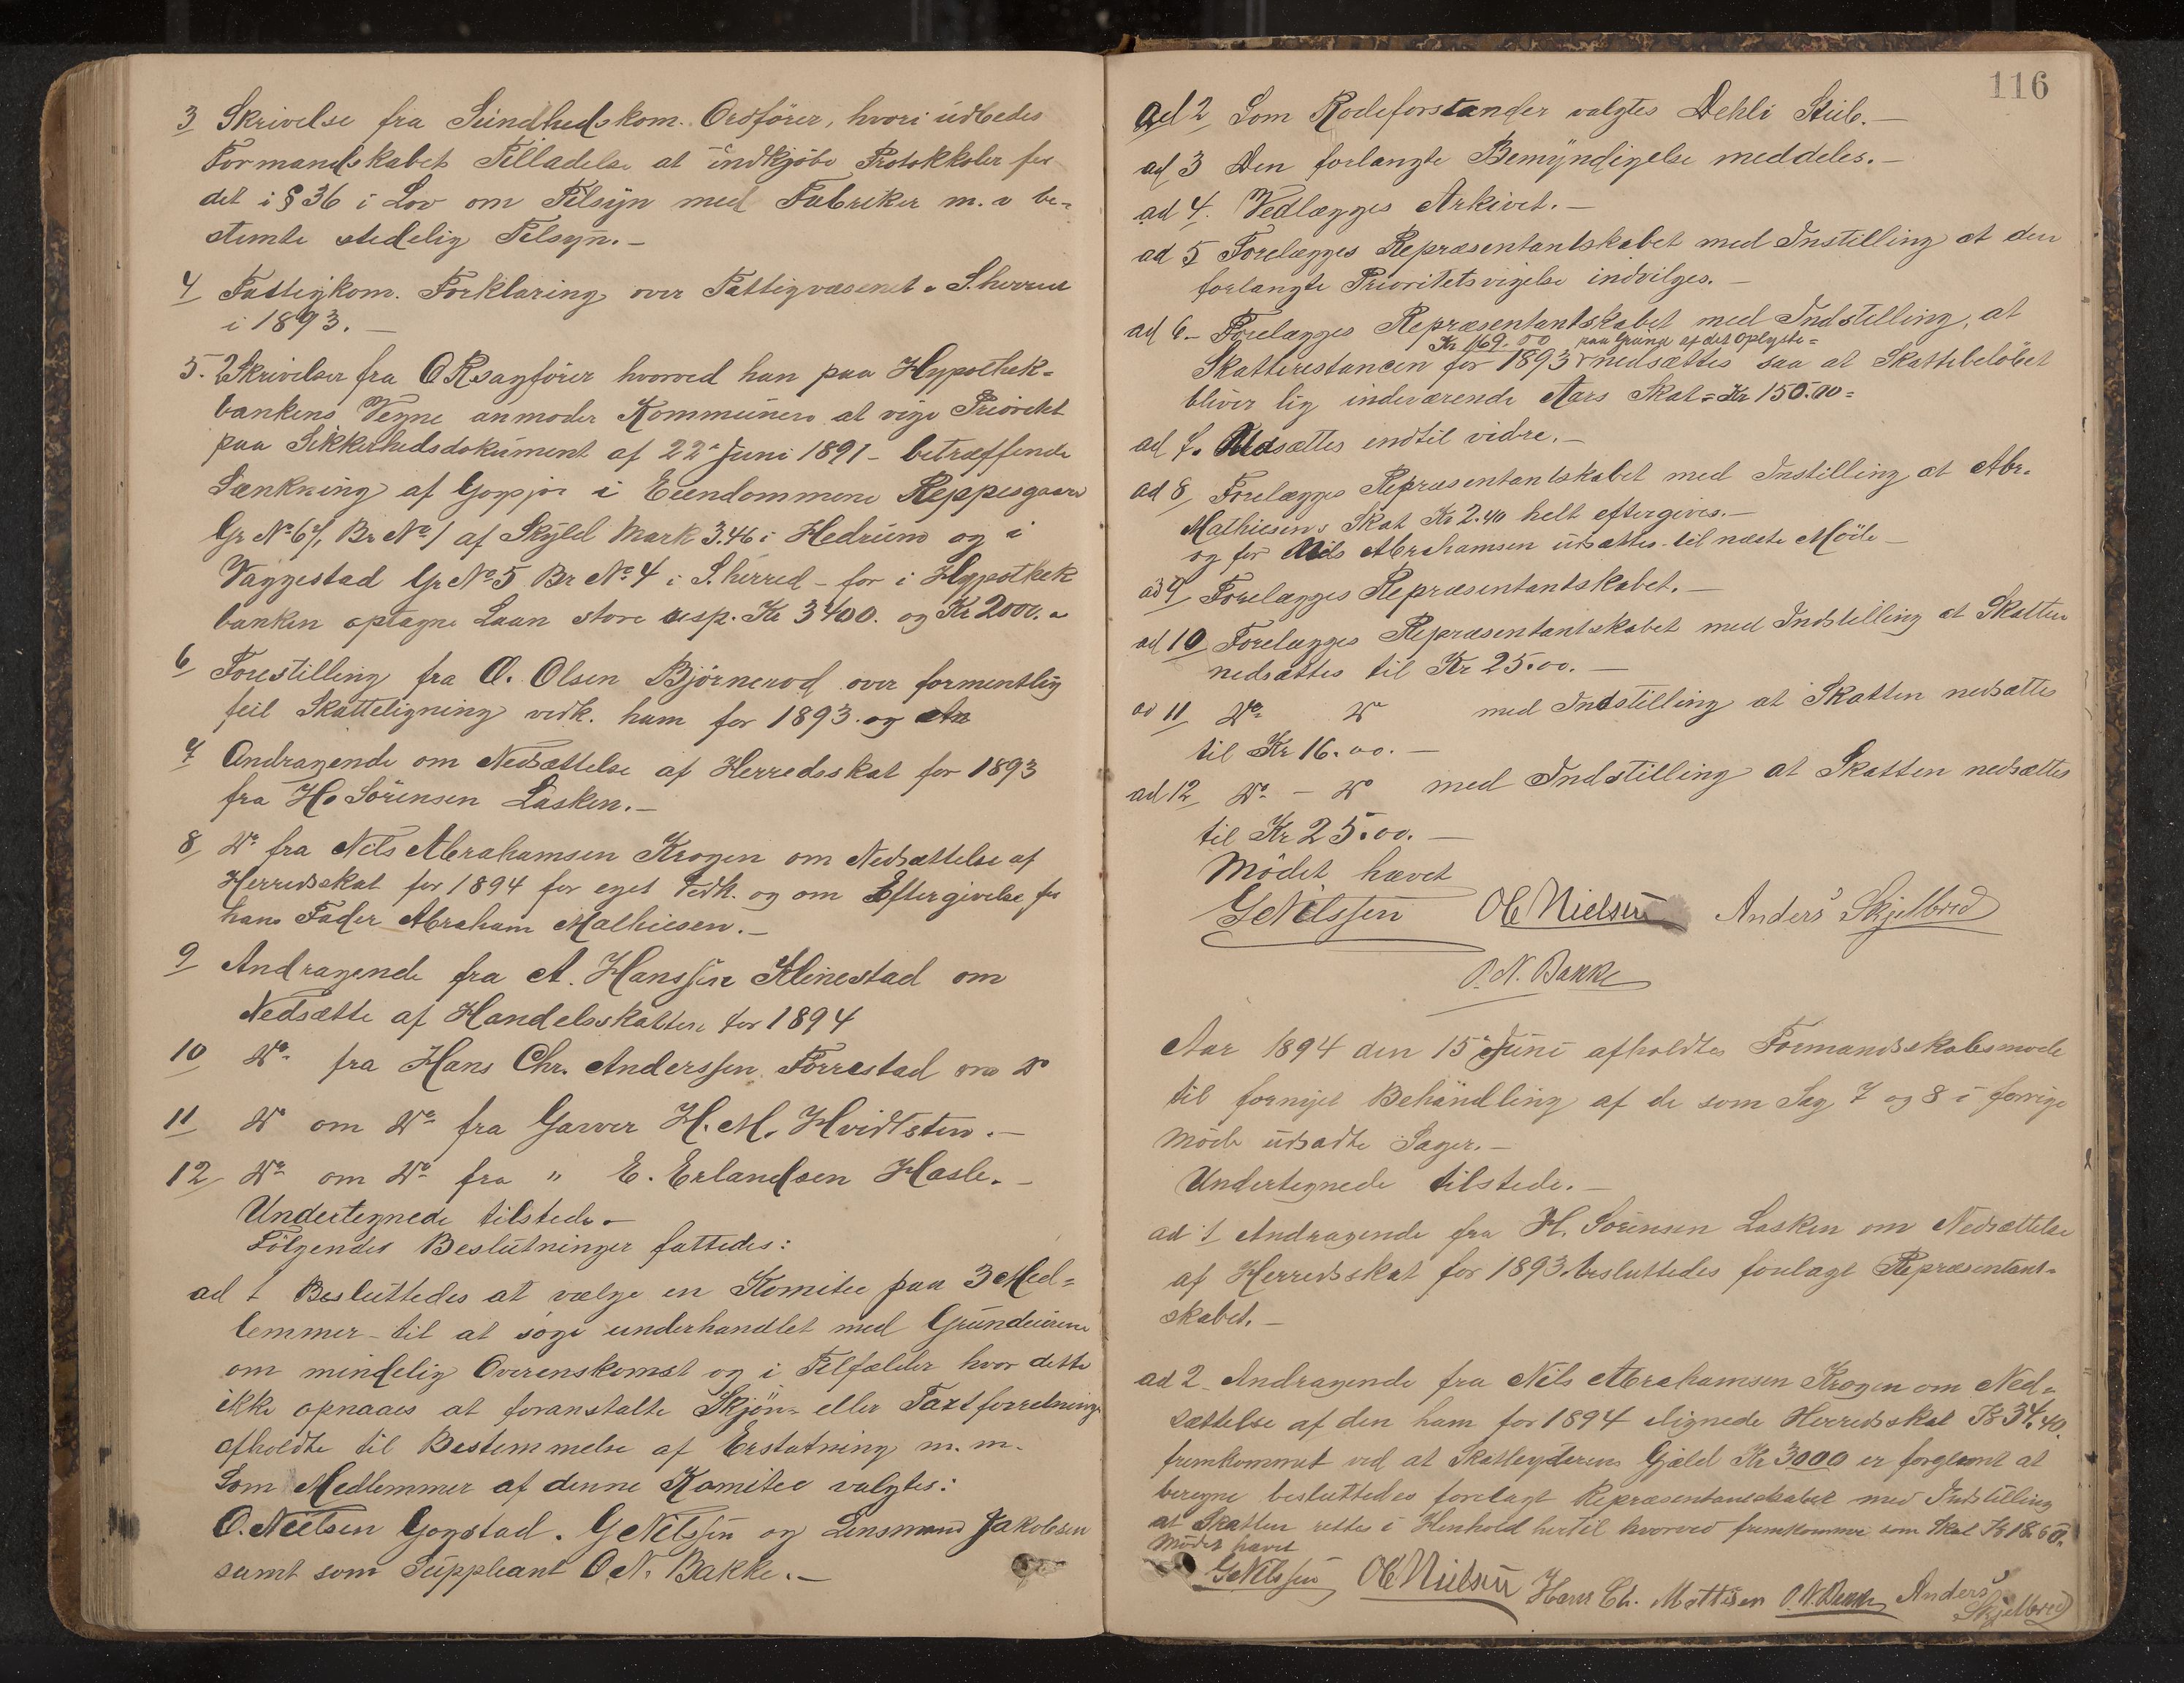 3 Skrivelse fra Sundhedskom. Ordfører, hvori udbedes
Formandskabets Tilladelse at indkjøbe Protokkoler for
det i § 36 i Lov om Tilsyn med Fabriker m.v be-
stemte stedelig Tilsyn.-
4 Fattigkom. Forklaring over Fattigvæsenet i S.herred
i 1893.-
5. 2 Skrivelser fra ORsagfører hvorved han paa Hypothek-
bankens Vegne anmoder Kommunen at vige Prioritet
paa Sikkerhedsdokument af 22de Juni 1891 - betræffende
Sænkning af Gogsjø i Eiendommene Reppesgaard
Gr No 67, Br No 1 af Skyld Mark 3.46 i Hedrum og i
Vaggestad Gr No 5 Br No 4 i S.herred - for i Hypothek
banken optagne Laan store resp. Kr 3400. og Kr 2000.-
6 Forestilling fra O. Olsen Bjørnerød over formentlig
feil Skatteligning vedk. ham for 1893. og
7 Andragende om Nedsættelse af Herredsskat for 1893
fra H. Sørensen Lasken.-
8 Do fra Nils Abrahamsen Krogen om Nedsættelse af
Herredsskat for 1894 for eget Vedk. og om Eftergivelse for
hans Fader Abraham Mathiesen.-
9 Andragende fra A. Hanssen Klinestad om
Nedsætte af Handelsskatten for 1894
10 Do fra Hans Chr. Anderssen Førrestad om Do
11 Do om Do fra Garver H. M. Hvidtsten.-
12 Do om Do fra " E. Erlandsen Hasle.-
Undertegnede tilstede.-
Følgendes Beslutninger fattedes:
ad 1 Besluttedes at vælge en Komite paa 3 Med-
lemmer - til at søge underhandlet med Grundeierne
om mindelig Overenskomst og i Tilfælder hvor dette
ikke opnaaes at foranstalte Skjøn- eller Taxtforretning
afholdte til Bestemmelse af Erstatning m.m.
Som Medlemmer af denne Komitee valgtes:
O. Nielsen Gogstad. G Nilssen og Lensmand Jakobsen
samt som Suppleant O.N. Bakke.-
116
ad 2 Som Rodeforstander valgtes Dehli Stub.-
ad 3 Den forlangte Bemyndigelse meddeles.-
ad 4. Vedlægges Arkivet.-
ad 5 Forelægges Repræsentantskabet med Instilling at den
forlangte Prioritetsvigelse indvilges.-
ad 6.- Forelægges Repræsentantskabet med Indstilling, at
Kr 169.00 paa Grund af det oplyste-
Skatterestancen for 1893 nedsættes saa at Skattebeløbet
bliver lig indeværende Aars Skat = Kr 150.00 =
ad 7. Udsættes indtil vidre.-
ad 8 Forelægges Repræsentantskabet med Instilling at Abr.
Mathiesens Skat Kr 2.40 helt eftergives.-
og for Nils Abrahamsen udsættes til næste Møde -
ad 9 Forelægges Repræsentantskabet.-
ad 10 Forelægges Repræsentantskabet med Indstilling at Skatten
nedsættes til Kr 25.00.-
ad 11 Do Do med Indstilling at Skatten nedsættes
til Kr 16.00.-
ad 12 Do - Do med Indstilling at Skatten nedsættes
til Kr 25.00.-
Mødet hævet
G Nilssen Ole Nielsen Anders Skjelbred
O. N. Bakke
Aar 1894 den 15de Juni afholdtes Formandsskabsmøde
til fornyet Behandling af de som Sag 7 og 8 i forrige
Møde udsadte Sager.-
Undertegnede tilstede.-
ad 1 Andragende fra H. Sørensen Lasken om Nedsættelse
af Herredsskat for 1893 besluttedes forelagt Repræsentant-
skabet.-
ad 2 Andragende fra Nils Abrahamsen Krogen om Ned-
sættelse af den ham for 1894 ilignede Herredsskat Kr 34.40.
fremkommet ved at Skatteyderens Gjæld Kr 3000 er forglemt at
beregne besluttedes forelagt Repræsentantskabet med Indstilling
at Skatten rettes i Henhold hertil hvorved fremkommer som Skat Kr 18.60.
Mødet hævet
G Nilssen Ole Nielsen Hans Ch. Mattisen O.N. Bakke Anders
Skjelbred